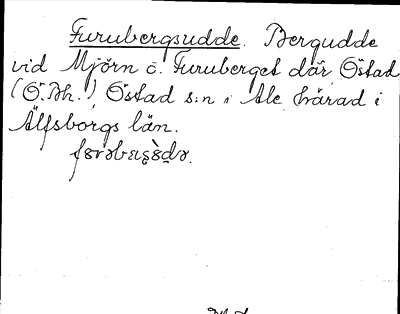 Furubergsudde. Bergudde
vid Mjörn o. Furuberget där, Östad
(Ö. Bh.) Östad s:n i Ale härad i
Älfsborgs län.